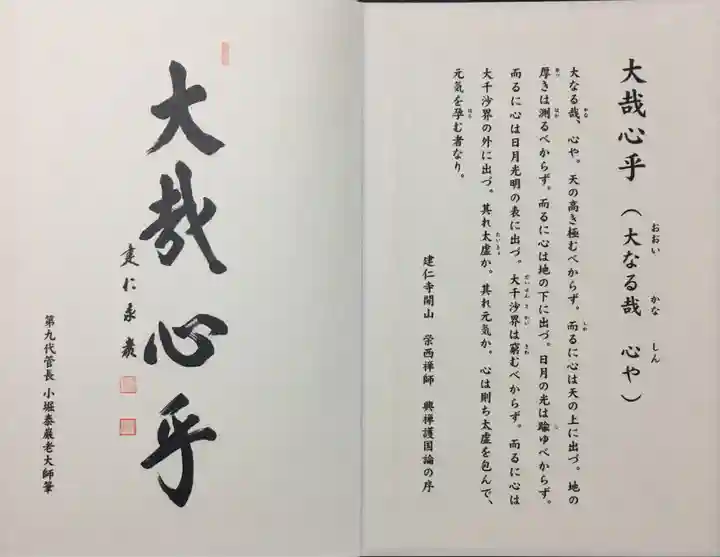 大哉心乎（大なる哉　心や）
おおい　かな　しん
大なる哉、心や。天の高き極むべからず。而るに心は天の上に出づ。地の
かな　しか
厚きは測るべからず。而るに心は地の下に出づ。日月の光は踰ゆべからず。
あつ　はか　こ
而るに心は日月光明の表に出づ。大千沙界は窮むべからず。而るに心は
だいせんしゃかい　きわ
大千沙界の外に出づ。其れ太虚か。其れ元気か。心は則ち太虚を包んで、
たいきょ
元気を孕む者なり。
はら
建仁寺開山　栄西禅師　興禅護国論の序
大哉心乎
建仁泰巌
第九代管長 小堀泰巌老大師筆